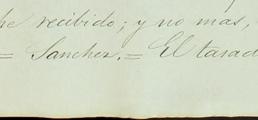 he recibido; y no mas,
= Sanchez. = El tasad